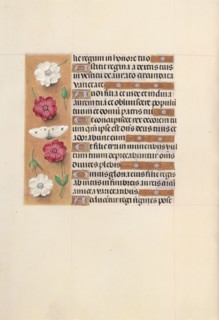 lie regum in honore tuo
Astitit regina a dextris tuis
in vestitu deaurato circundata
varietate
Audi filia et vide et inclina
aurem tuam et obliviscere populum
tuum et domum patris tui
Et concupiscet rex decorem tu
um quoniam ipse est dominus deus tuus et
adorabunt eum
Et filie tiri in muneribus vul
tum tuum deprecabuntur omnes
divites plebis
Omnis gloria eius filie regis
ab intus in fimbriis aureis circum
amicta varietatibus
Adducentur regi virgines post